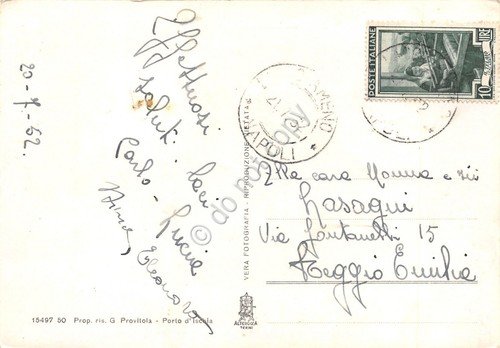 20-7-52.
Affettuosi
saluti. baci
Carlo - Lucia
Anna Eleonora
POSTE ITALIANE
LIRE
10
NAPOLI
VERA FOTOGRAFIA - RIPRODUZIONE VIETATA
Alla cara Nonna e zii
Lasagni
Via Fontanelli 15
Reggio Emilia
15497 50 Prop. ris. G Provitola - Porto d'Ischia
ALTEROCCA
TERNI
do not copy